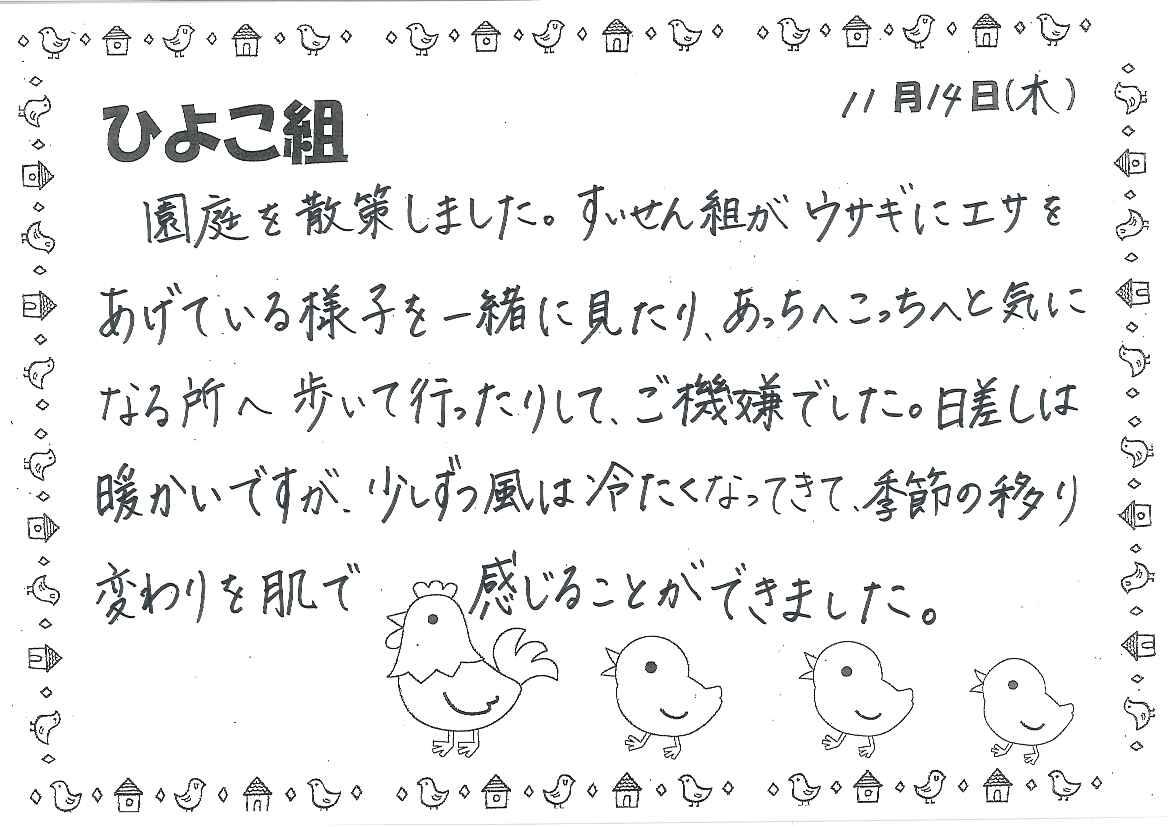 11月14日(木)
ひよこ組
園庭を散策しました。すいせん組がウサギにエサを
あげている様子を一緒に見たり、あっちへこっちへと気に
なる所へ歩いて行ったりして、ご機嫌でした。日差しは
暖かいですが、少しずつ風は冷たくなってきて、季節の移り
変わりを肌で感じることができました。